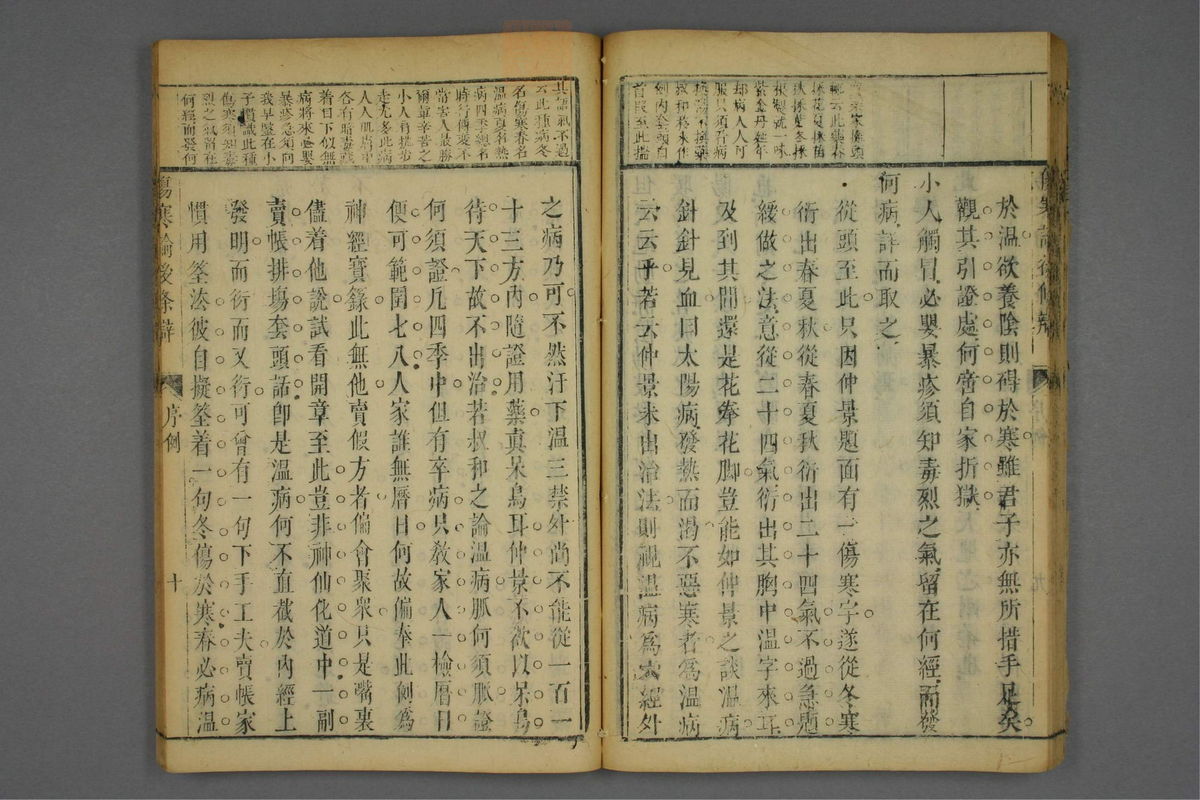 於溫欲養陰則碍於寒雖君子亦無所措手足矣
觀其引證處何嘗自家折獄
小人觸冒必嬰暴疹須知毒烈之氣留在何經而發
何病詳而取之
從頭至此只因仲景題面有一傷寒字遂從冬寒
衍出春夏秋從春夏秋衍出二十四氣不過急題
緩做之法意從二十四氣衍出其胸中溫字來耳
及到其間還是花拳花脚豈能如仲景之談溫病
針針見血曰太陽病發熱而渴不惡寒者為溫病
云云乎若云仲景未出治法則視溫病為六經外
之病乃可不然汗下溫三禁外尚不能從一百一
十三方內隨證用藥真呆鳥耳仲景不欲以呆鳥
待天下故不出治若叔和之論溫病脈何須脈證
何須證凡四季中但有卒病只教家人一檢曆日
便可範圍七八人家誰無曆日何故偏奉此劍為
神經寶錄此無他賣假方者偏會聚眾只是嘴裏
儘着他說試看開章至此豈非神仙化道中一副
賣帳排塲套頭話卽是溫病何不直截於內經上
發明而衍而又衍可曾有一句下手工夫賣帳家
慣用筌法彼自擬筌着一句冬傷於寒春必病溫
傷寒論後條辯
序例
十
其語氣不過
云此種病冬
名傷寒春名
溫病夏名熱
病四季總名
時行傳變不
當害人最勝
爾輩辛苦之
小人肩挑步
走尤多此病
人人肌膚中
各有暗毒藏
着目下似無
病將來必嬰
暴疹急須向
我早鑒在小
子慣識此種
傷寒須知毒
烈之氣留在
何經而發何